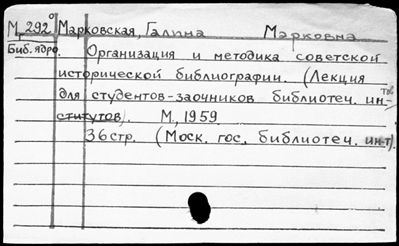 М,292° Марковская, Галина Марковна
Биб. ядро. Организация и методика советской
исторической библиографии. (Лекция
для студентов-заочников библиотеч. ин-тов
ститутов). М., 1959.
36 стр. (Моск. гос. библиотеч. ин-т).